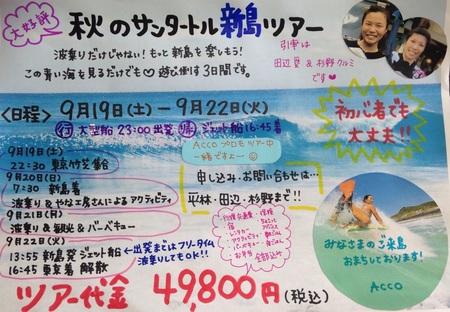 大好評
秋のサンタートル新島ツアー
波乗りだけじゃない!もっと新島を楽しもう!
この青い海を見るだけでも♡遊び倒す3日間です。
引率は
田辺 & 杉野クルミ
です♥
<日程> 9月19日(土)-9月22日(火)
行 大型船 23:00出発 帰 ジェット船 16:45着
初心者でも
大丈夫!!
ACCOプロもツアー中
一緒ですよー
9月19日(土)
22:30 東京竹芝集合
9月20日(日)
7:30 新島着
波乗り & やな工房さんによるアクティビティ
9月21日(月)
波乗り & 観光 & バーベキュー
9月22日(火)
13:55 新島発 ジェット船 ←出発まではフリータイム
波乗りしてもOK!!
16:45 東京着 解散
申し込み・お問い合わせは…
平林・田辺・杉野まで…
・宿
・レンタカー
・アクティビティ
・バーベキュー
・お弁当
全部込み
みなさまのご来島
おまちしております!
ACCO
ツアー代金 49,800円(税込)